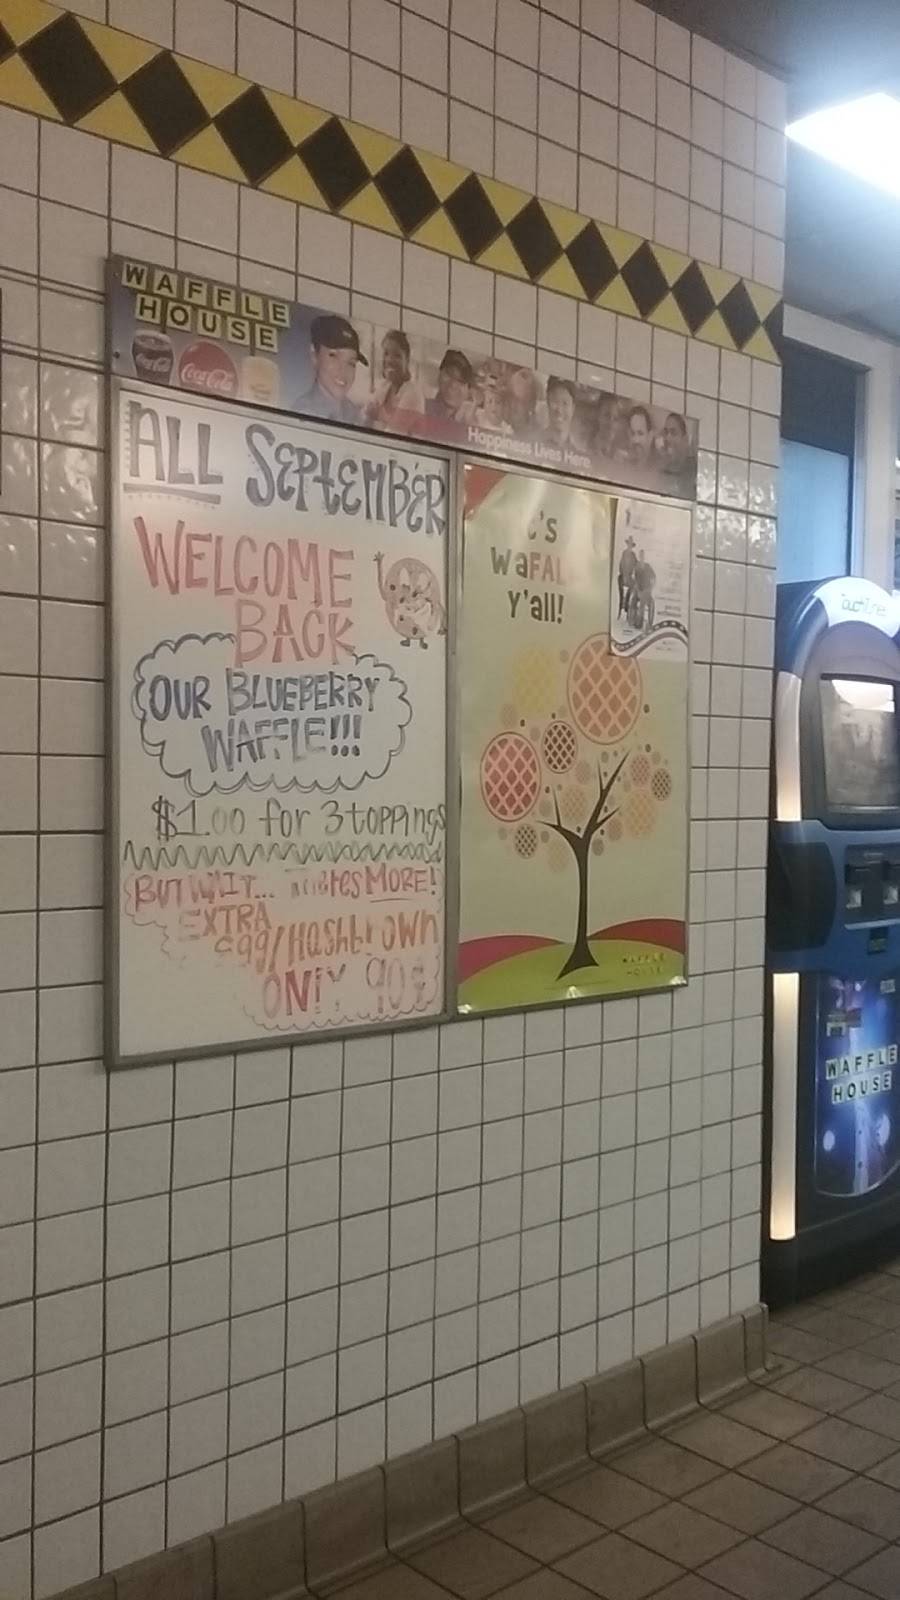 WAFFLE
HOUSE
Coca-Cola
Happiness Lives Here.
ALL SEPTEMBER
WELCOME
BACK
OUR BLUEBERRY
WAFFLE!!!
$1.00 for 3 toppings
BUT WAIT... MORE!
EXTRA
egg/Hashbrown
ONLY 90¢
't's
waFAL
Y'all!
WAFFLE
HOUSE
TouchTunes
WAFFLE
HOUSE